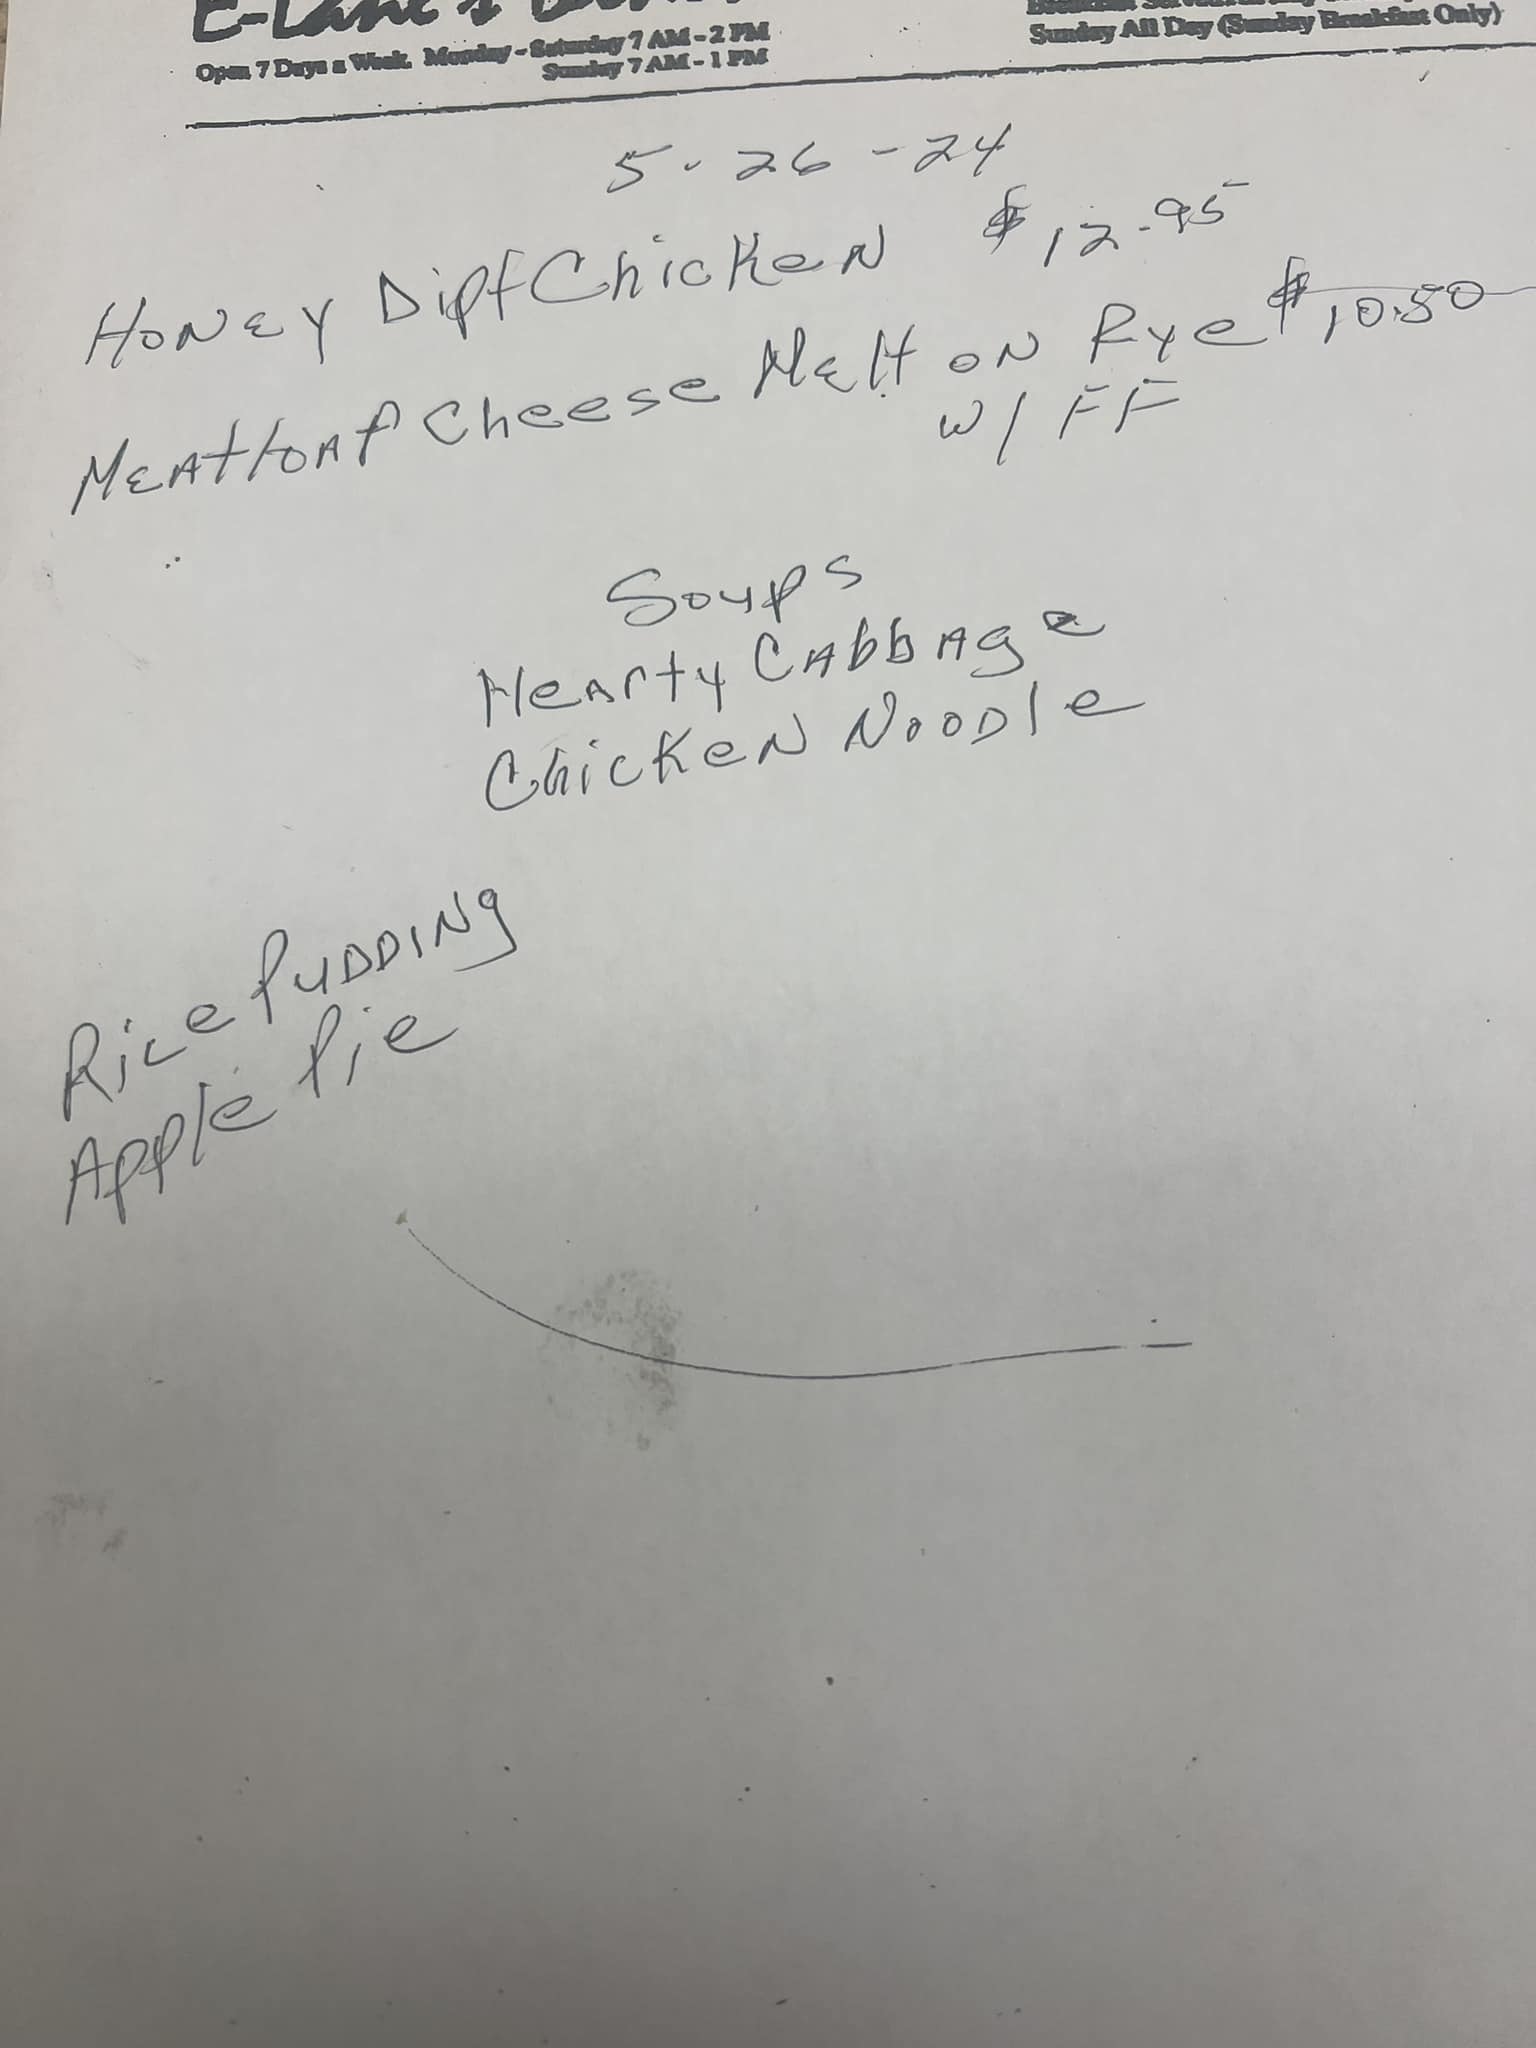 E-Lane's
Open 7 Days a Week. Monday - Saturday 7 AM - 2 PM
Sunday 7 AM - 1 PM
Sunday All Day (Sunday Breakfast Only)
5-26-24
Honey Dipt Chicken $12.95
Meatloaf Cheese Melt on Rye $10.50
w/ FF
Soups
Hearty Cabbage
Chicken Noodle
Rice Pudding
Apple Pie